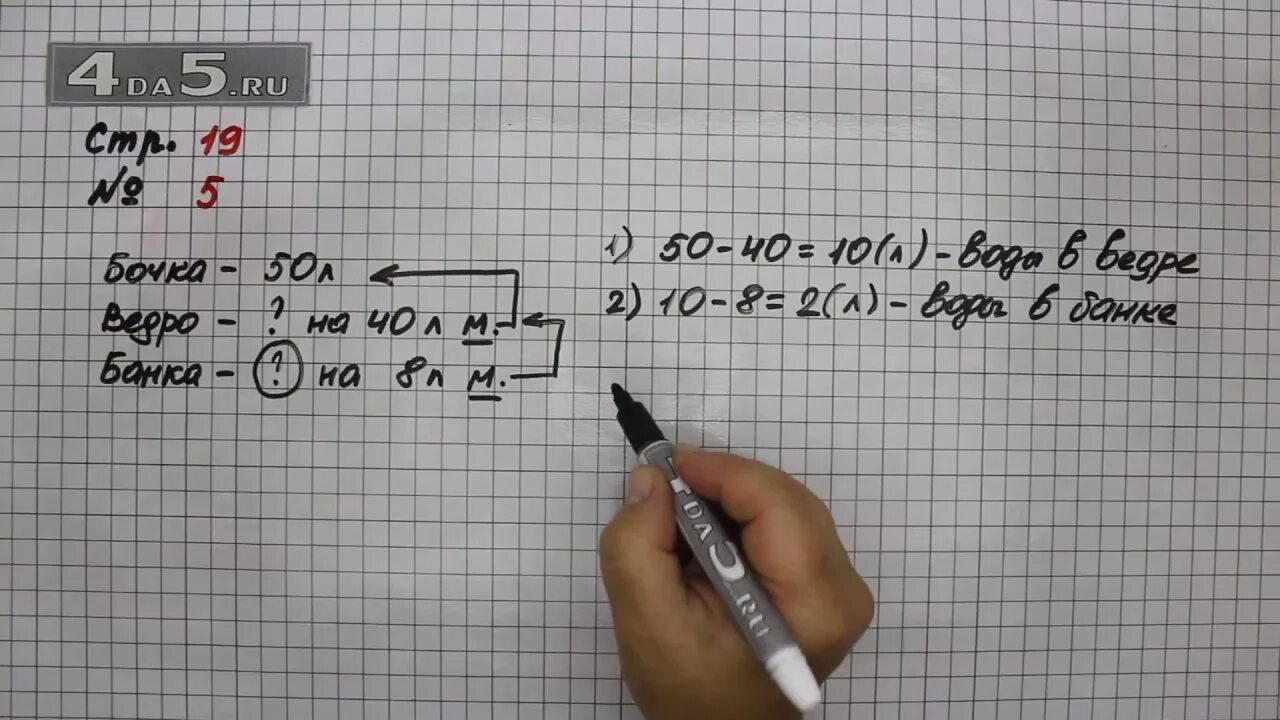 4DA5.RU
Стр. 19
№ 5
Бочка - 50л
Ведро - ? на 40л м.
Банка - ? на 8л м.
1) 50-40=10(л)-воды в ведре
2) 10-8=2(л)-воды в банке
4DA5.RU